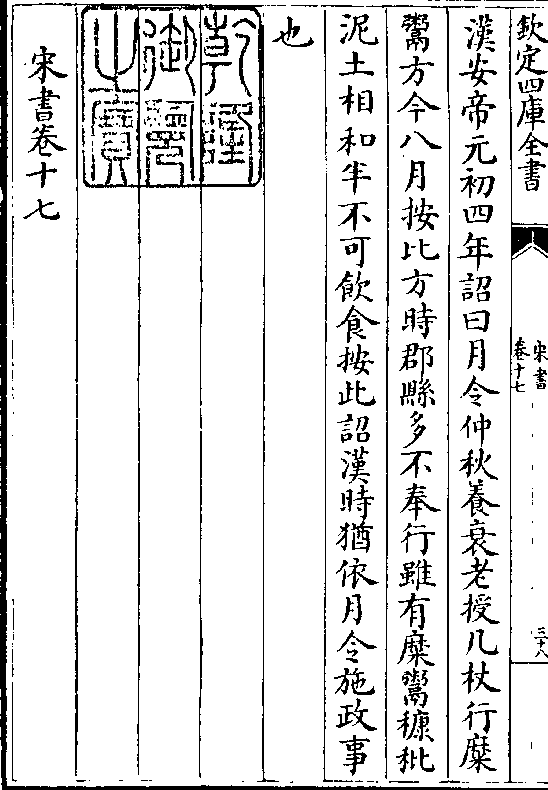 欽定四庫全書
宋書
卷十七
三十八
漢安帝元初四年詔曰月令仲秋養衰老授几杖行糜
鬻方今八月按比方時郡縣多不奉行雖有糜鬻糠秕
泥土相和半不可飲食按此詔漢時猶依月令施政事
也
乾隆
御覽
之寶
宋書卷十七